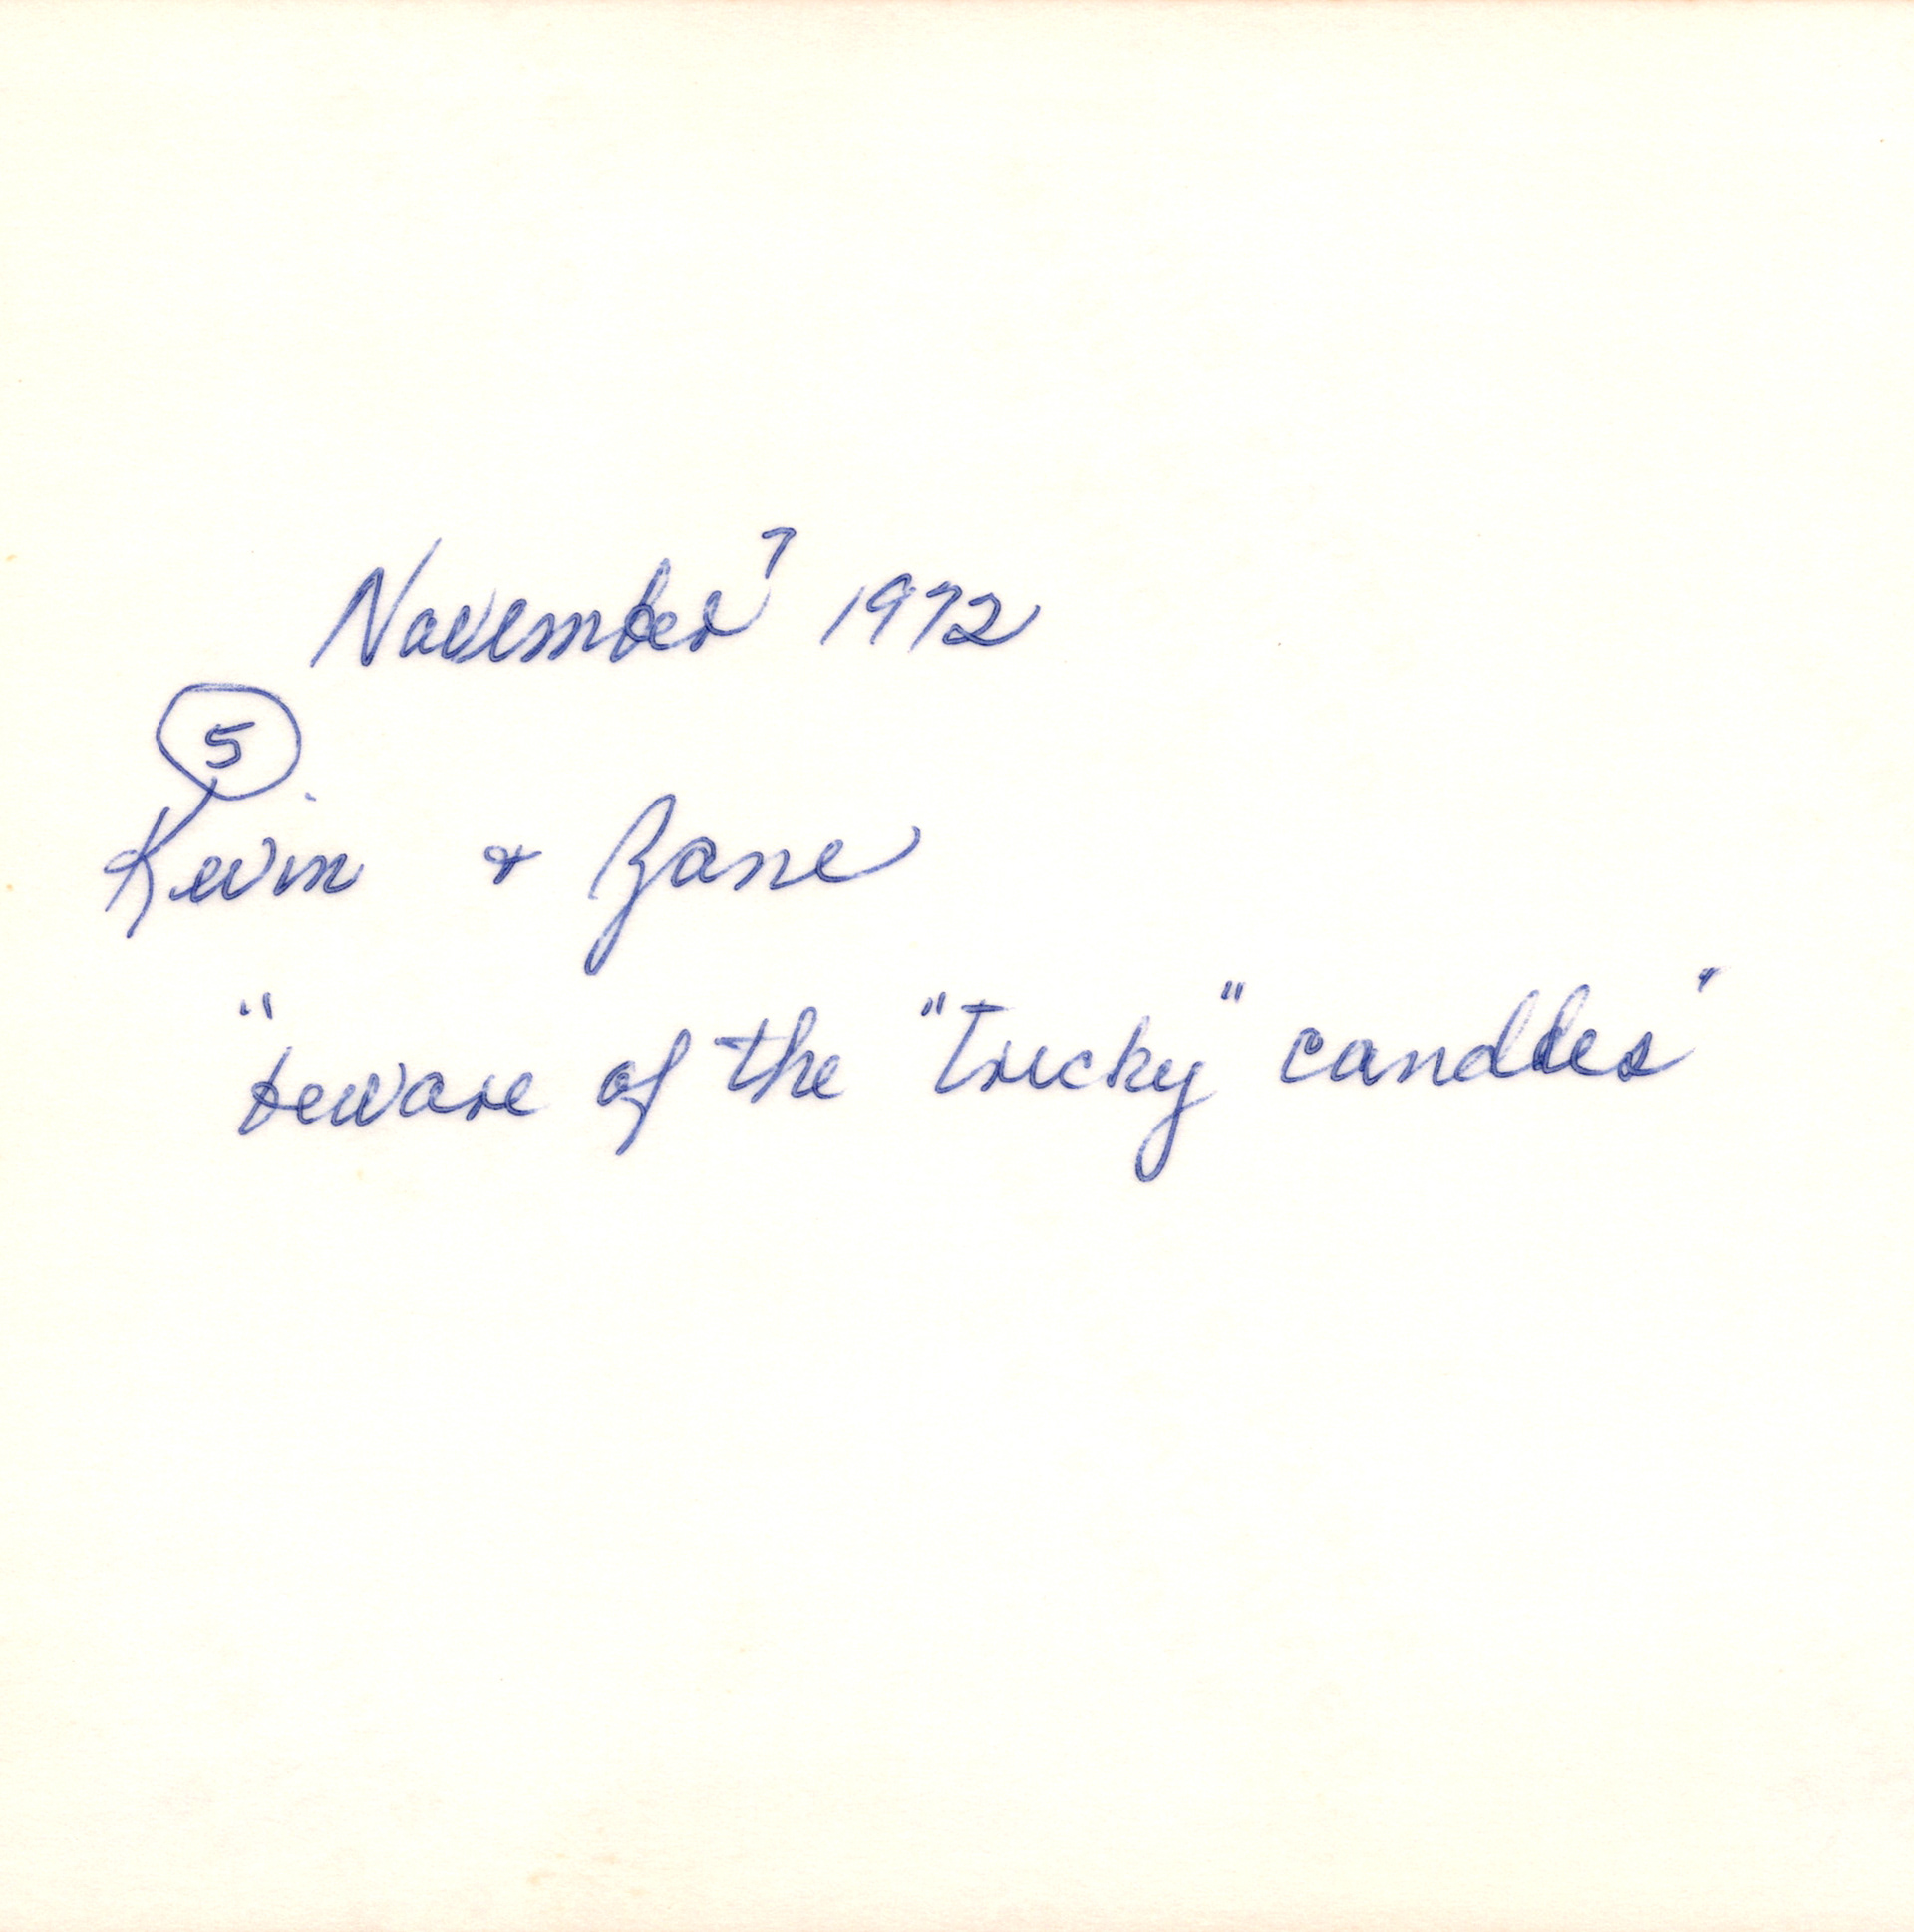 November 7 1972
5
Kevin & Zane
"beware of the "Tricky" candles"